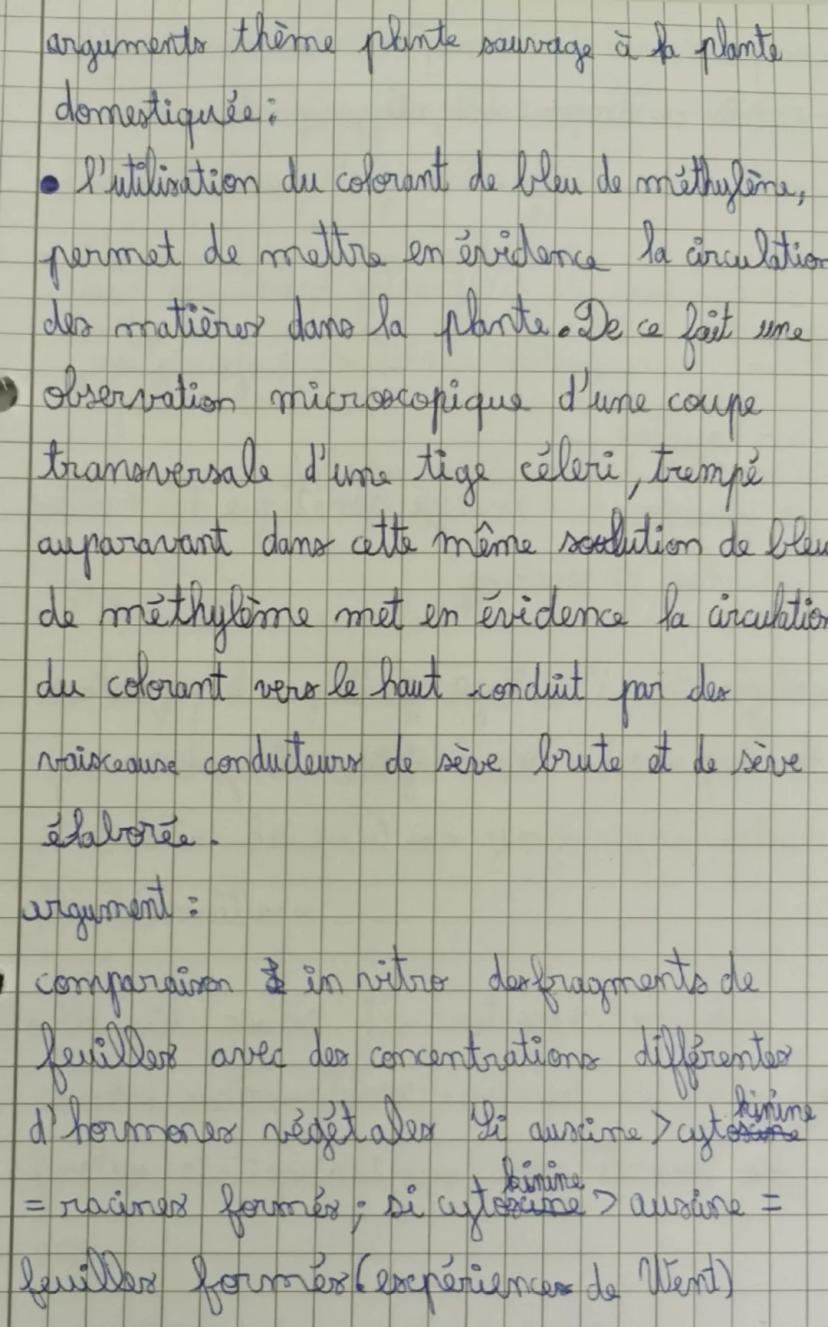 arguments thème plante sauvage à la plante
domestiquée :
• l'utilisation du colorant de bleu de méthylène,
permet de mettre en évidence la circulation
des matières dans la plante. De ce fait une
observation microscopique d'une coupe
transversale d'une tige céleri, trempé
auparavant dans cette même solution de bleu
de méthylème met en évidence la circulation
du colorant vers le haut conduit par des
vaisceause conducteurs de sève brute et de sève
élaborée.
argument :
comparaison in vitro des fragments de
feuilles avec des concentrations différentes
d'hormones végétales Si auxine > cytokinine
= racines formés ; si cytokinine > auxine =
feuilles formés (expériences de Went)